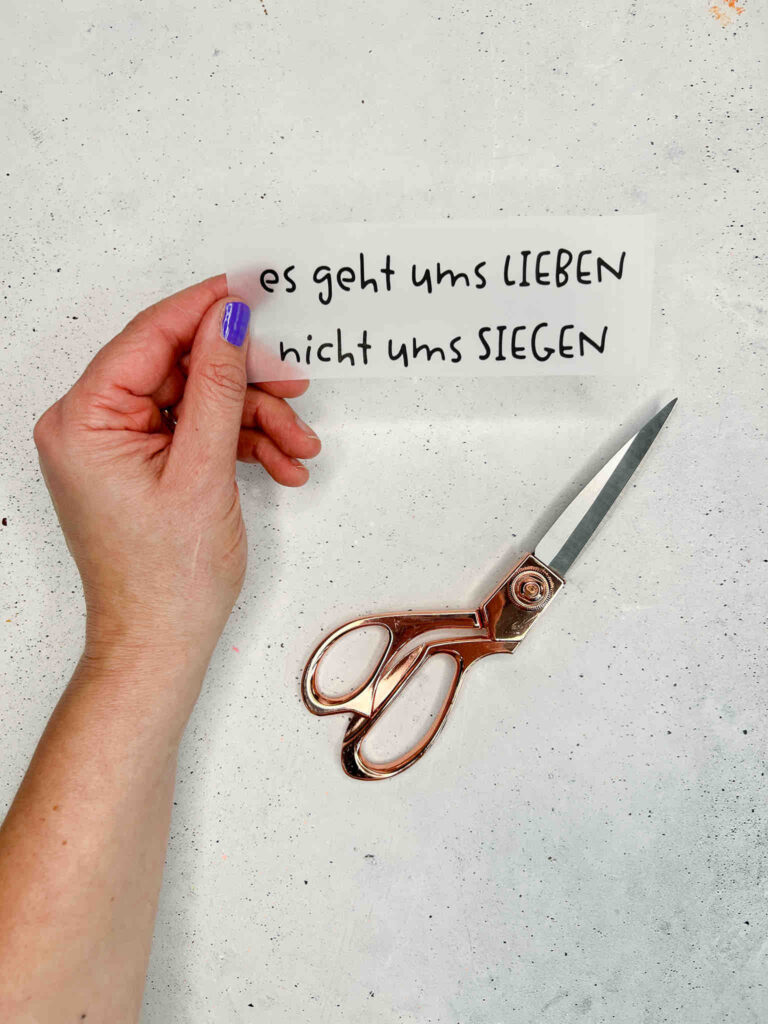 es geht ums LIEBEN
nicht ums SIEGEN